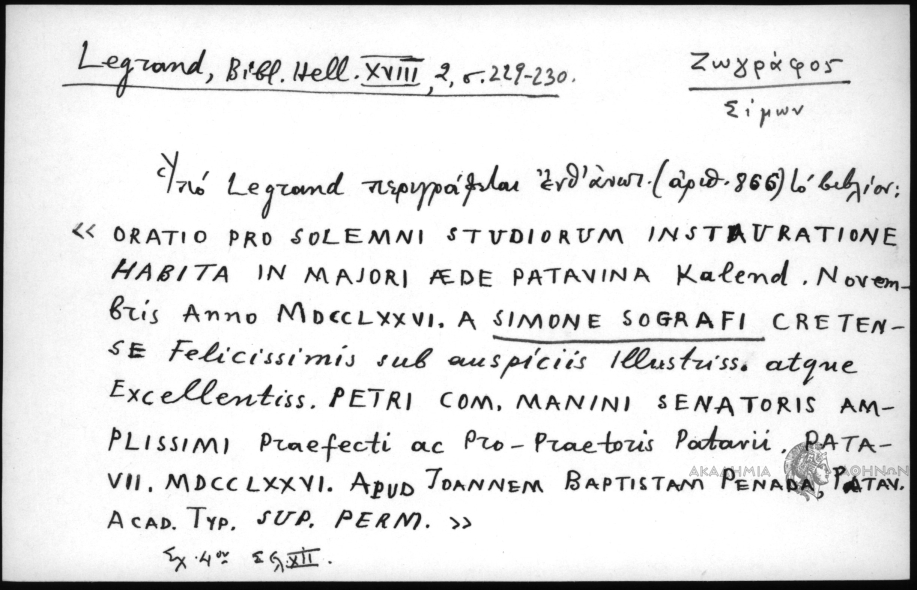 Legrand, Βιβλ. Hell. XVIII, 2, σ. 229-230.
Ζωγράφος
Σίμων
Ὑπό Legrand περιγράφεται ἐνθ' ἀνωτ. (ἀριθ. 866) τό βιβλίον:
« ORATIO PRO SOLEMNI STUDIORUM INSTAURATIONE
HABITA IN MAJORI ÆDE PATAVINA Kalend. Novem-
bris Anno MDCCLXXVI. A SIMONE SOGRAFI CRETEN-
SE Felicissimis sub auspiciis Illustriss. atque
Excellentiss. PETRI COM. MANINI SENATORIS AM-
PLISSIMI Praefecti ac Pro-Praetoris Patavii. PATA-
VII. MDCCLXXVI. APUD JOANNEM BAPTISTAM PENADA, PATAV.
ACAD. TYP. SUP. PERM. »
Σχ. 4ον Σελ XII.
ΑΚΑΔΗΜΙΑ ΑΘΗΝΩΝ